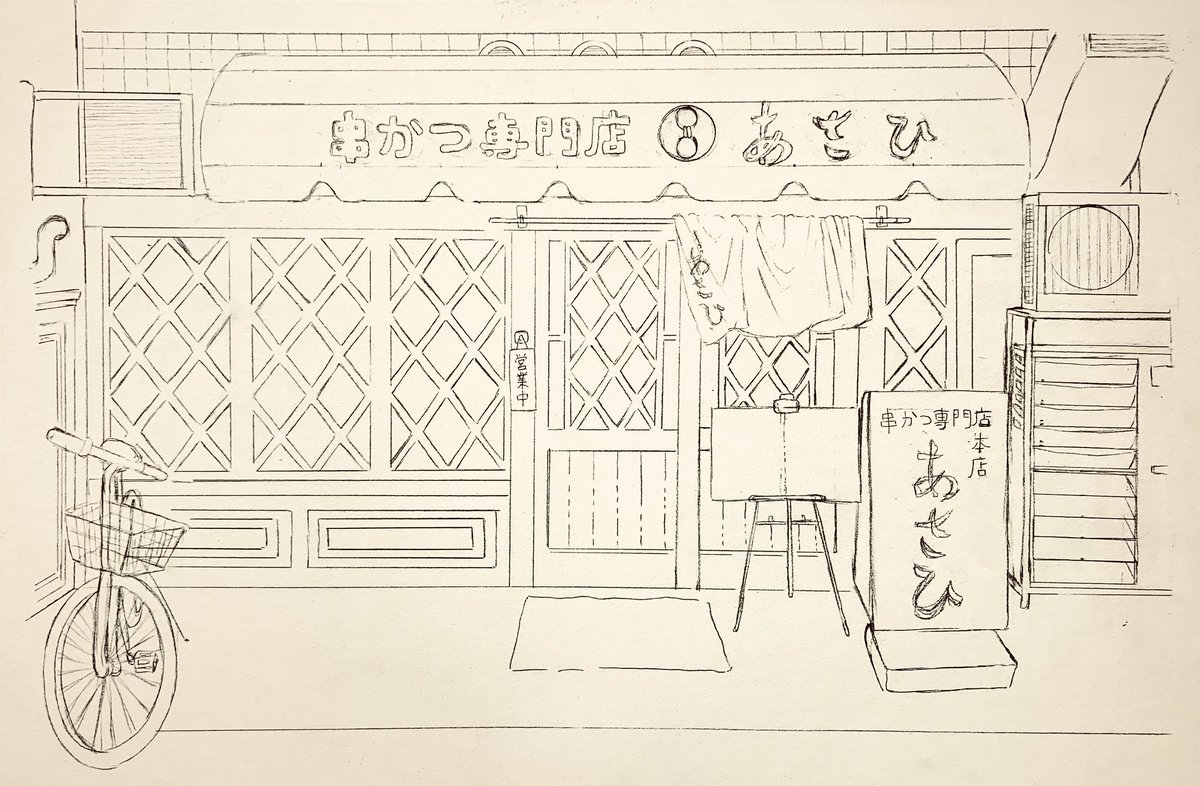 串かつ専門店 あさひ
あさひ
営業中
串かつ専門店
本店
あさひ